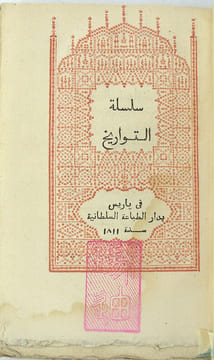 سلسلة
التواريخ
فى پاريس
بدار الطباعة السلطانية
سنة ١٨١١